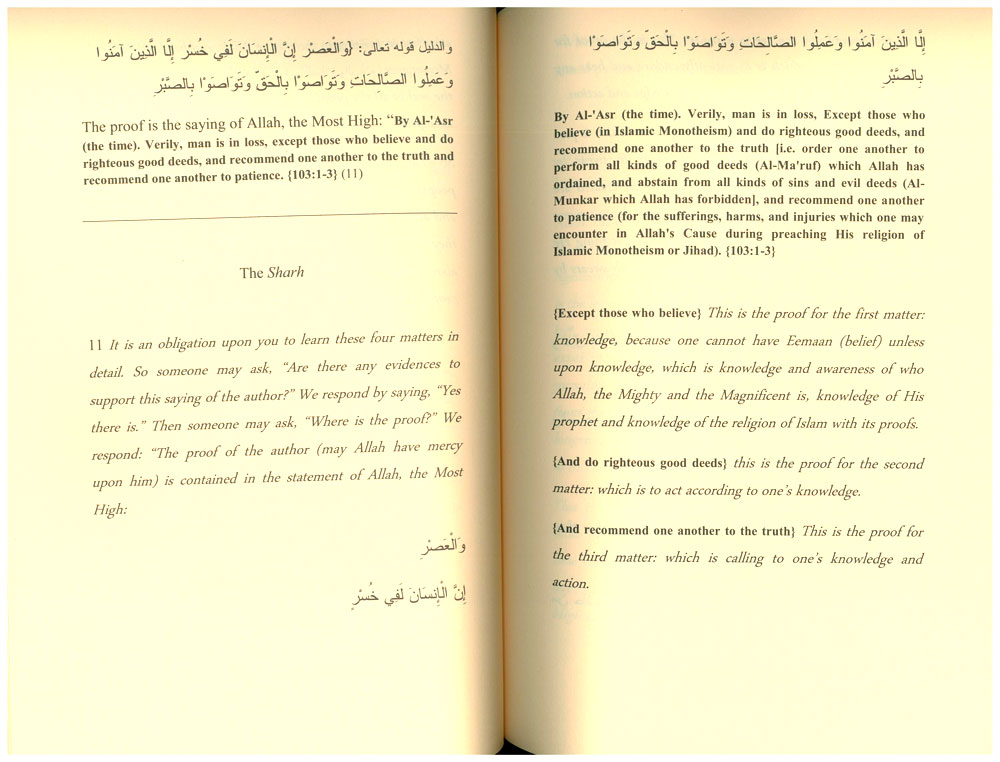 والدليل قوله تعالى: {وَالْعَصْرِ إِنَّ الْإِنسَانَ لَفِي خُسْرٍ إِلَّا الَّذِينَ آمَنُوا
وَعَمِلُوا الصَّالِحَاتِ وَتَوَاصَوْا بِالْحَقِّ وَتَوَاصَوْا بِالصَّبْرِ
The proof is the saying of Allah, the Most High: “By Al-'Asr
(the time). Verily, man is in loss, except those who believe and do
righteous good deeds, and recommend one another to the truth and
recommend one another to patience. {103:1-3} (11)
The Sharh
11 It is an obligation upon you to learn these four matters in
detail. So someone may ask, “Are there any evidences to
support this saying of the author?” We respond by saying, “Yes
there is.” Then someone may ask, “Where is the proof?” We
respond: “The proof of the author (may Allah have mercy
upon him) is contained in the statement of Allah, the Most
High:
وَالْعَصْرِ
إِنَّ الْإِنسَانَ لَفِي خُسْرٍ
إِلَّا الَّذِينَ آمَنُوا وَعَمِلُوا الصَّالِحَاتِ وَتَوَاصَوْا بِالْحَقِّ وَتَوَاصَوْا
بِالصَّبْرِ
By Al-'Asr (the time). Verily, man is in loss, Except those who
believe (in Islamic Monotheism) and do righteous good deeds, and
recommend one another to the truth [i.e. order one another to
perform all kinds of good deeds (Al-Ma'ruf) which Allah has
ordained, and abstain from all kinds of sins and evil deeds (Al-
Munkar which Allah has forbidden], and recommend one another
to patience (for the sufferings, harms, and injuries which one may
encounter in Allah's Cause during preaching His religion of
Islamic Monotheism or Jihad). {103:1-3}
{Except those who believe} This is the proof for the first matter:
knowledge, because one cannot have Eemaan (belief) unless
upon knowledge, which is knowledge and awareness of who
Allah, the Mighty and the Magnificent is, knowledge of His
prophet and knowledge of the religion of Islam with its proofs.
{And do righteous good deeds} this is the proof for the second
matter: which is to act according to one’s knowledge.
{And recommend one another to the truth} This is the proof for
the third matter: which is calling to one’s knowledge and
action.